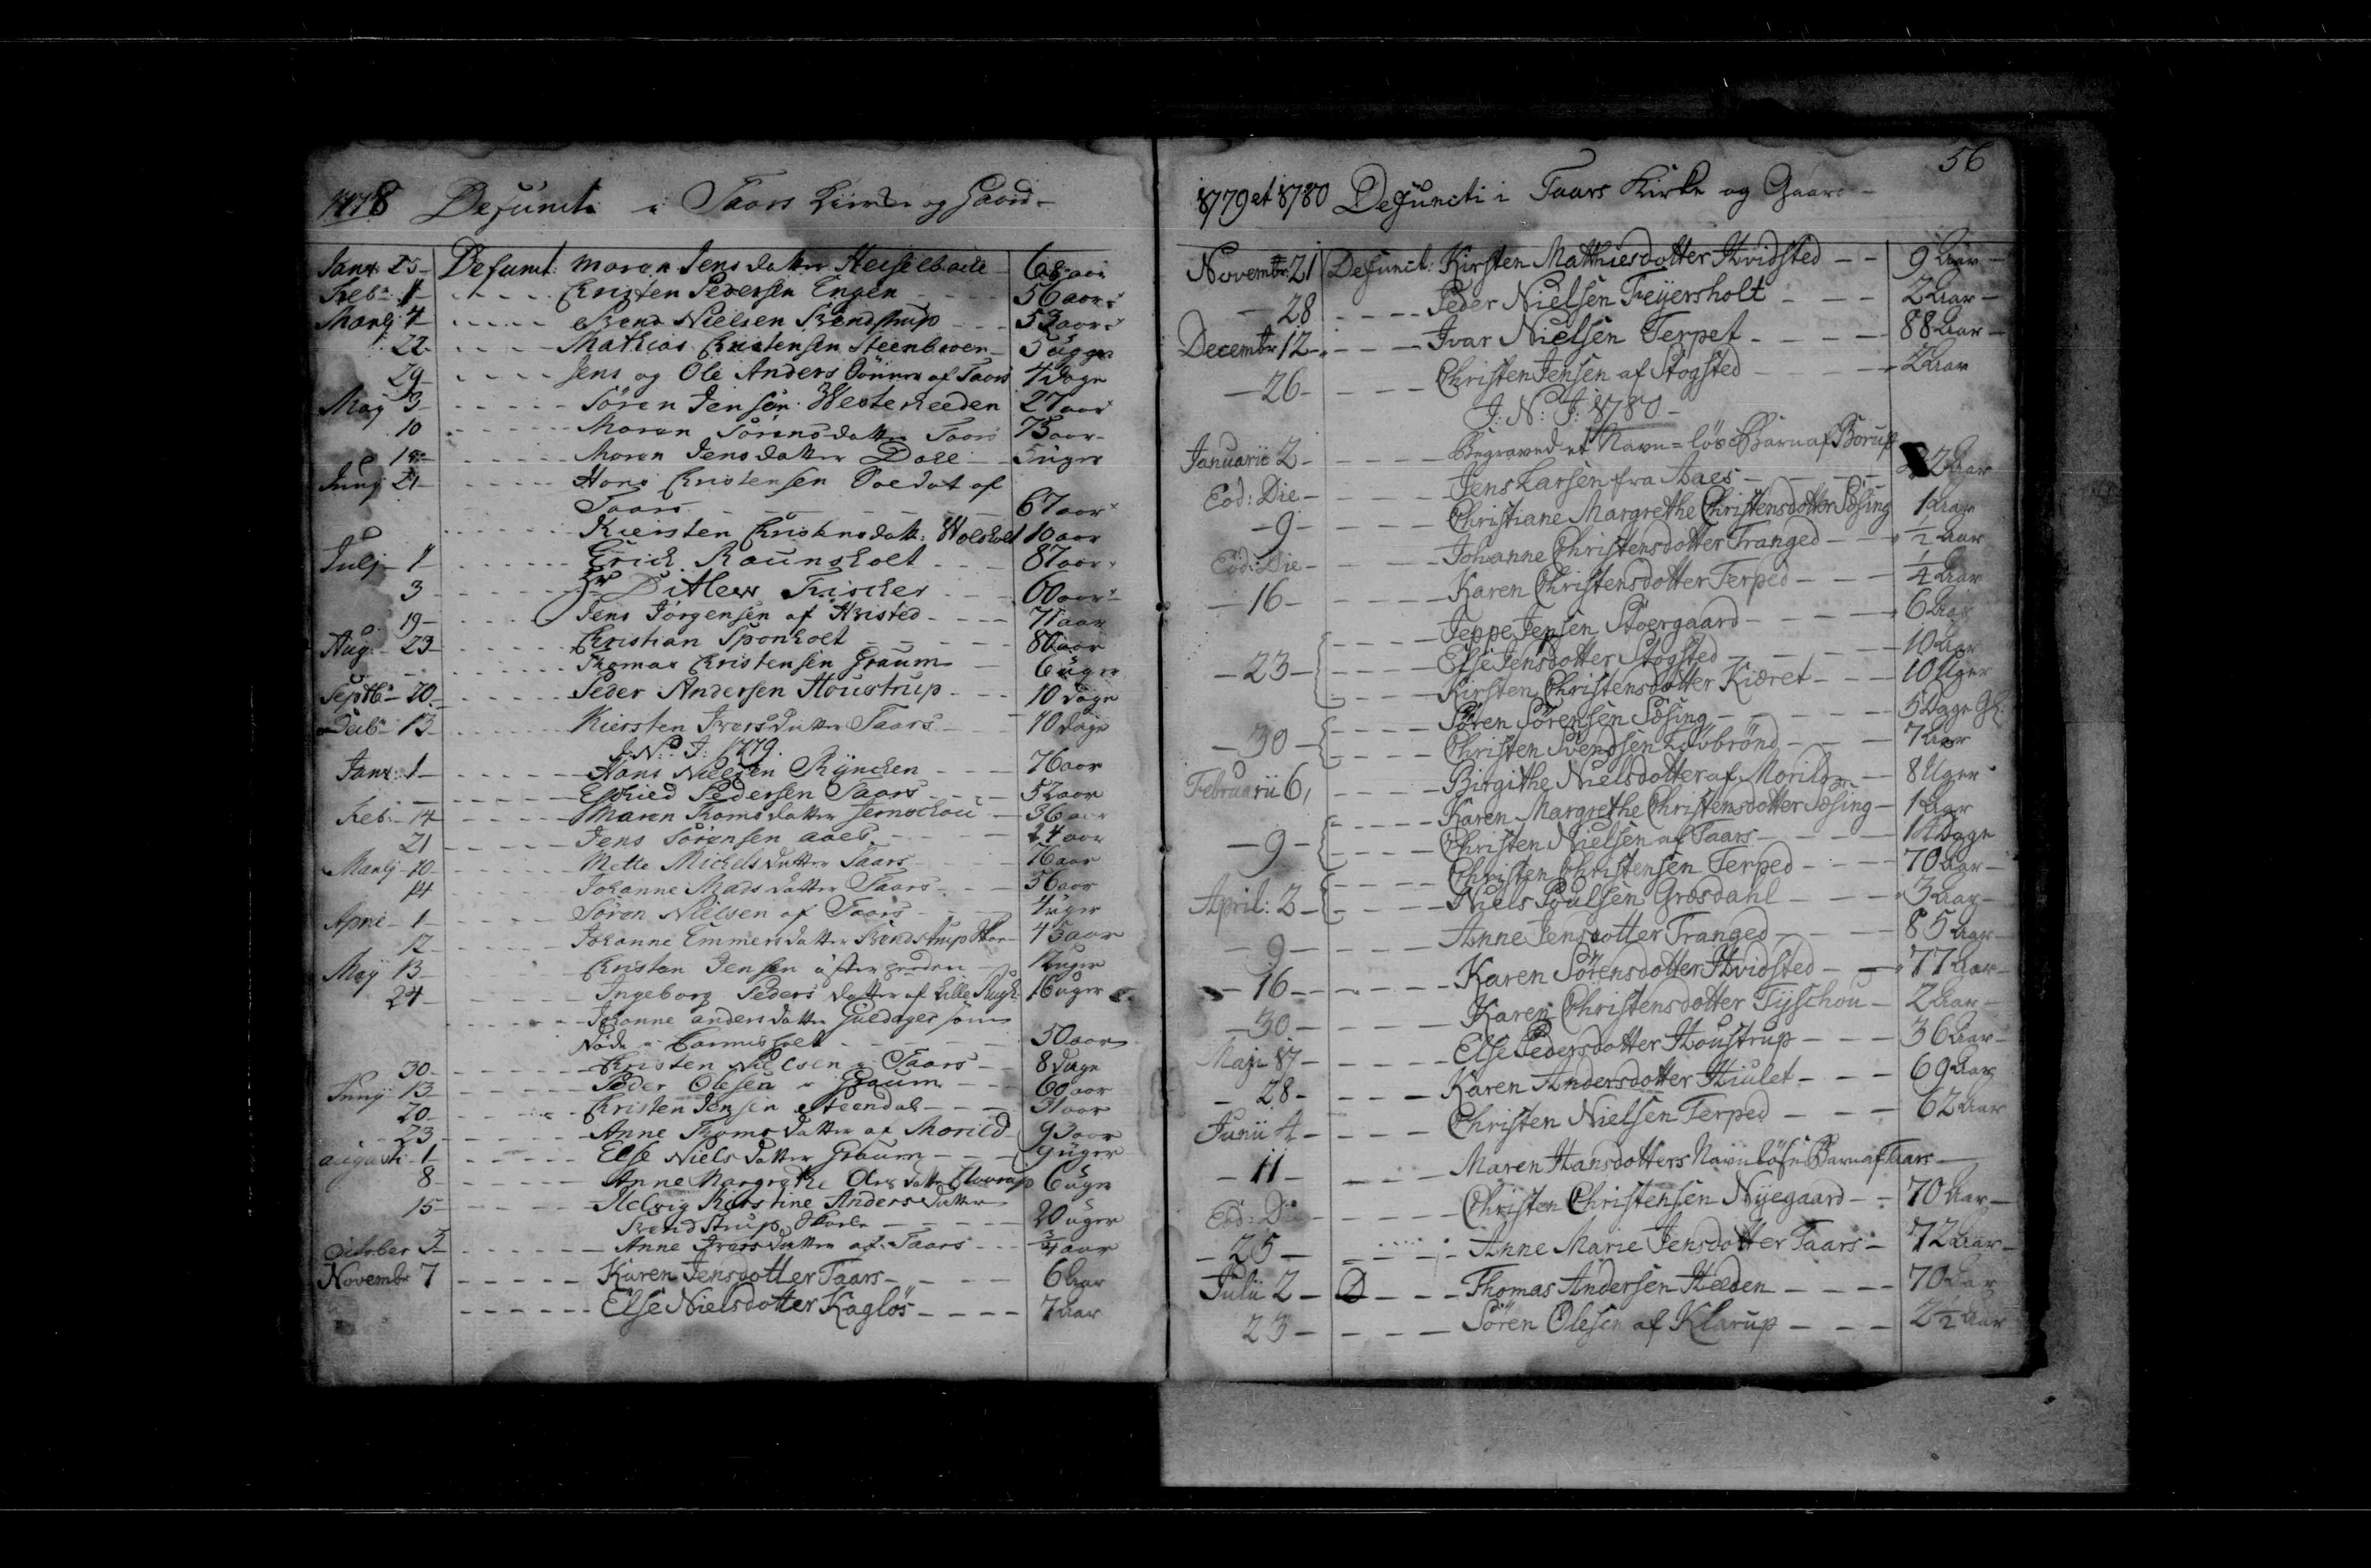 1778 Defuncti i Taars Kirke og Gaard
Janr. 25 Defunct: Maren Jens datter Heiselbach 68 aar
Feb. 1 Christen Pedersen Engen 56 aar
Martj 4 Svend Nielsen Svendstrup 53 aar
22 Mathias Christensen Steenbroen 5 uger
29 Jens og Ole Anders Sönner af Taars 4 dage
Maj 3 Sören Jensen Westerheeden 27 aar
10 Maren Sörensdatter Taars 73 aar
Maren Jens datter Dall 5 uger
Junj 21 Hans Christensen Soldat af
Taars 67 aar
Kiersten Christensdatt: Wolsholt 10 aar
Julj 1 Erich Raunsholt 87 aar
3 Hr Ditlew Fischer 60 aar
19 Jens Jörgensen af Hvisted 71 aar
Aug. 23 Christian Sponholt 80 aar
Thomas Christensen Graum 6 uger
Septbr 20 Peder Andersen Houstrup 10 dage
13 Kiersten Iversdatter Taars 10 dage
J: N: J: 1779.
Janr: 1 Hans Nielsen Rÿncken 76 aar
Pedersen Taars 52 aar
Feb. 14 Maren Thomsdatter Jernschou 36 aar
21 Jens Sörensen aaes 24 aar
Martj 10 Mette Michelsdatter Taars 76 aar
14 Johanne Madsdatter Taars 56 aar
Apri 1 Sören Nielsen af Taars 4 uger
12 Johanne Emmersdatter Svendstrup 43 aar
Maÿ 13 Christen Jensen uger
24 Ingeborg Peders datter af Lille 16 uger
Johanne anders datter Guldager
50 aar
30 Christen Nielsen i Taars 8 dage
Junij 13 Peder Olesen i Graum 60 aar
20 Christen Jensen Steendal 31 aar
23 Anne Thomsdatter af Morild 93 aar
augusti 1 Else Niels datter Graum 9 uger
8 Anne Margrethe Ols datter 6 uger
15 Helvig Kirstine Anders datter
Svendstrup 20 uger
October 3 Anne Iversdatter af Taars 3/4 aar
Novembr 7 Karen Jensdotter Taars 6 Aar
Else Nielsdotter Kaglös 7 Aar
56
1779 et 1780 Defuncti i Taars Kirke og Gaard
Novembr: 21 Defunct: Kirsten Mathiesdotter Hvidsted 9 Aar
28 Peder Nielsen Feÿersholt 2 Aar
Decembr 12 Ivar Nielsen Terpet 88 Aar
26 Christen Jensen af Stogsted 2 Aar
J: N: J: 1780
Januarii 2 Begraved et Navn=löse Barn af Borup
Eod: Die Jens Larsen fra Aaes 2 Aar
9 Christiane Margrethe Christensdotter Sösing 1 Aar
Eod: Die Johanne Christensdotter Tranged 1/2 Aar
16 Karen Christensdotter Terped 1/4 Aar
Jeppe Jensen Stoergaard 6 Aar
23 Else Jensdotter Stogsted 10 Aar
Kirsten Christensdotter Kiæret 10 Uger
Sören Sörensen Sösing 5 Dage
30 Christen Svendsen Lövbrönd 7 Aar
Februarii 6, Birgithe Nielsdotter af Morild 8 Uger
Karen Margrethe Christensdotter Sösing 1 Aar
9 Christen Nielsen af Taars 14 Dage
Christen Christensen Terped 70 Aar
April: 2 Niels Poulsen Græsdahl 3 Aar
9 Anne Jensdotter Tranged 85 Aar
16 Karen Sörensdotter Hvidsted 77 Aar
30 Karen Christensdotter Tÿschou 2 Aar
Maji 17 Else Pedersdotter Houstrup 36 Aar
28 Karen Andersdotter Hiulet 69 Aar
Junii 4 Christen Nielsen Terped 62 Aar
11 Maren Hansdotters Navnlöse Barn af Taars
Eod: Die Christen Christensen Nÿegaard 70 Aar
25 Anne Marie Jensdotter Taars 72 Aar
Julii 2 Thomas Andersen Heeden 70 Aar
23 Sören Olesen af Klarup 2 1/2 Aar